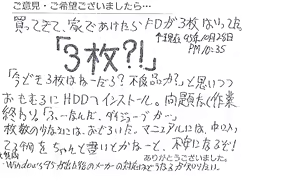 ご意見・ご希望ございましたら…
買ってきて、家であけたらFDが3枚はいってた。
↑現在95年10月25日
PM 10:35
「3枚?!」
「うども3枚はねーだろ?不良品か?」と思いつつ
おもむろにHDDへインストール。問題なく作業
終わり。「ふーなんだ、ダイジョーブカー」
枚数の少なさには、おどろいた。マニュアルには、
3て何を ちゃんと書いとかなーと、不安になるぞ!
ありがとうございました。
Windows95が出た後のメーカーの対応はどうなるか知りたい。